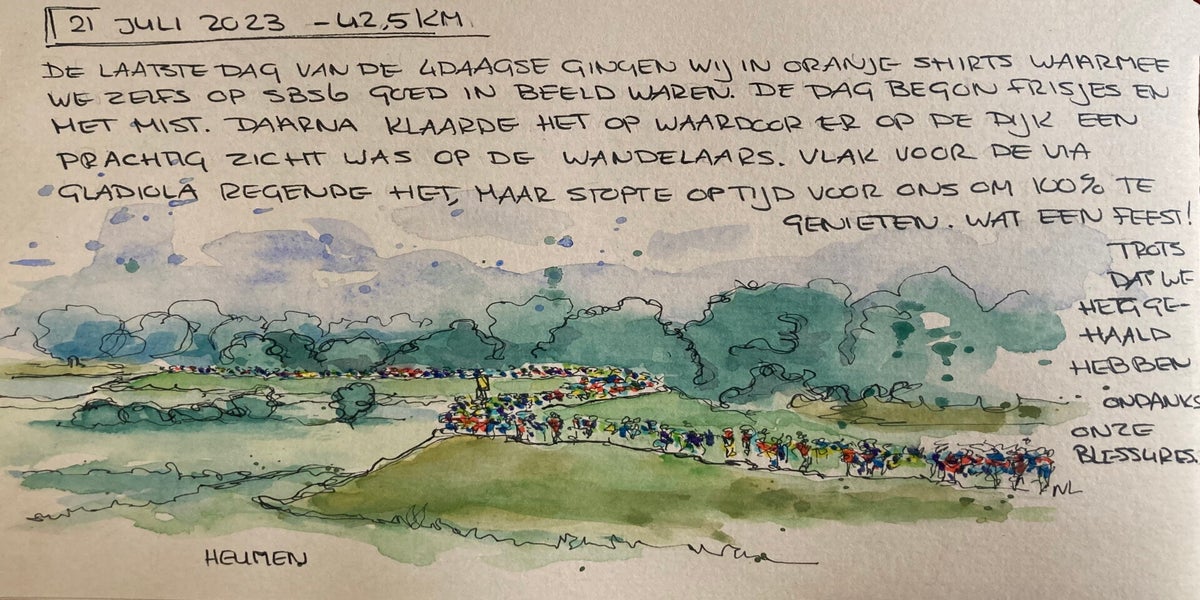 21 JULI 2023 - 42,5 KM.
DE LAATSTE DAG VAN DE 4DAAGSE GINGEN WIJ IN ORANJE SHIRTS WAARMEE
WE ZELFS OP SBS6 GOED IN BEELD WAREN. DE DAG BEGON FRISJES EN
MET MIST. DAARNA KLAARDE HET OP WAARDOOR ER OP DE DIJK EEN
PRACHTIG ZICHT WAS OP DE WANDELAARS. VLAK VOOR DE VIA
GLADIOLA REGENDE HET, MAAR STOPTE OP TIJD VOOR ONS OM 100% TE
GENIETEN. WAT EEN FEEST!
TROTS
DAT WE
HET GE-
HAALD
HEBBEN
ONDANKS
ONZE
BLESSURES.
NL
HEUMEN